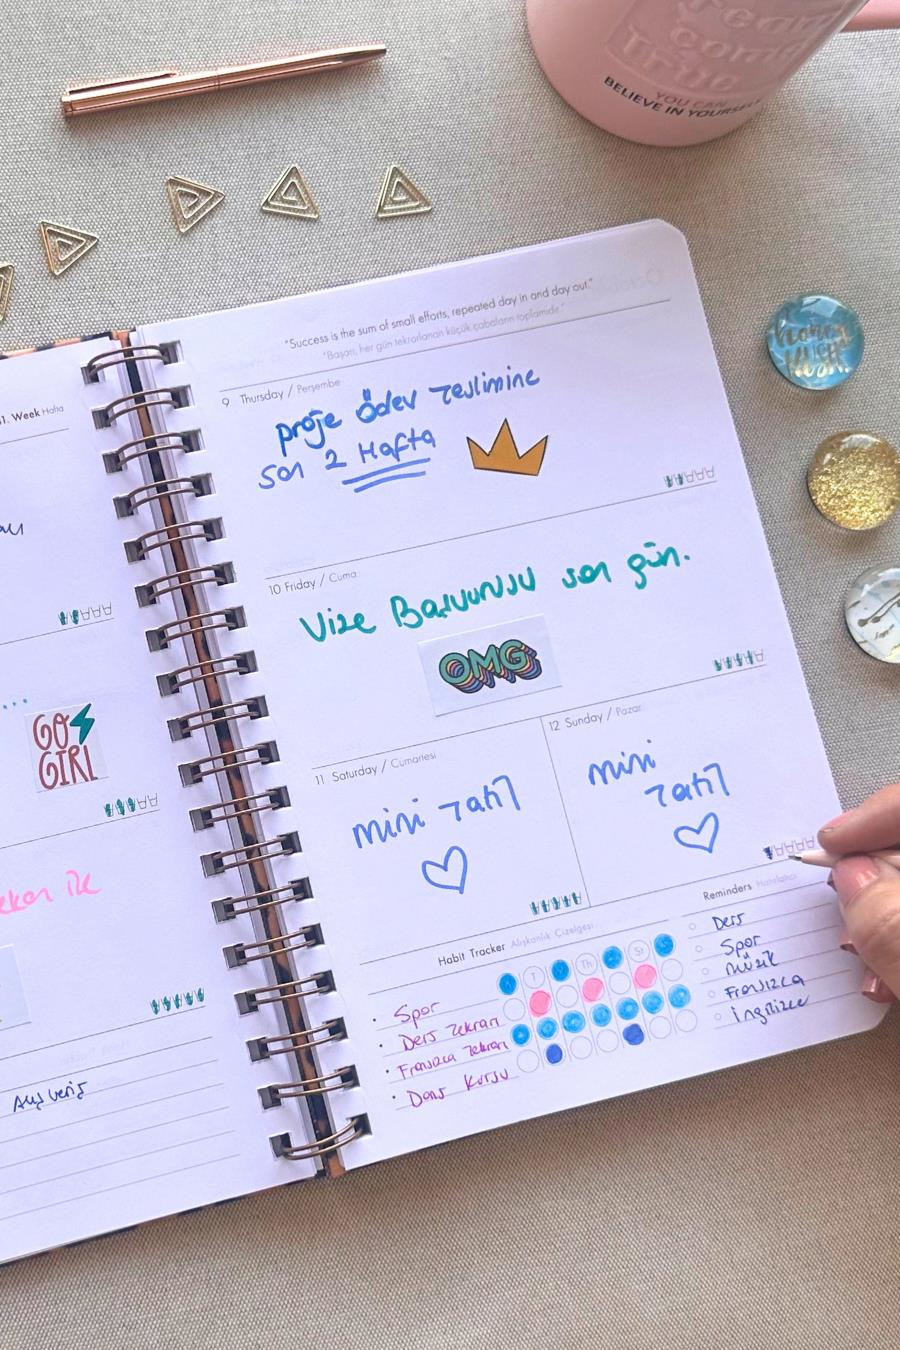 Dream
Come
True
YOU CAN
BELIEVE IN YOURSELF
honey
HUSH
"Success is the sum of small efforts, repeated day in and day out."
"Başarı, her gün tekrarlanan küçük çabaların toplamıdır."
9 Thursday / Perşembe
proje ödev Teslimine
son 2 Hafta
10 Friday / Cuma
Vize Başvurusu son gün.
OMG
11 Saturday / Cumartesi
mini Tatil
12 Sunday / Pazar
mini
Tatil
Habit Tracker Alışkanlık Çizelgesi
T Th St
Spor
Ders Tekrarı
Fransızca Tekrarı
Dans Kursu
Reminders Hatırlatıcı
Ders
Spor
müzik
Fransızca
İngilizce
Week Hafta
GO
GIRL
ilk
Alışveriş